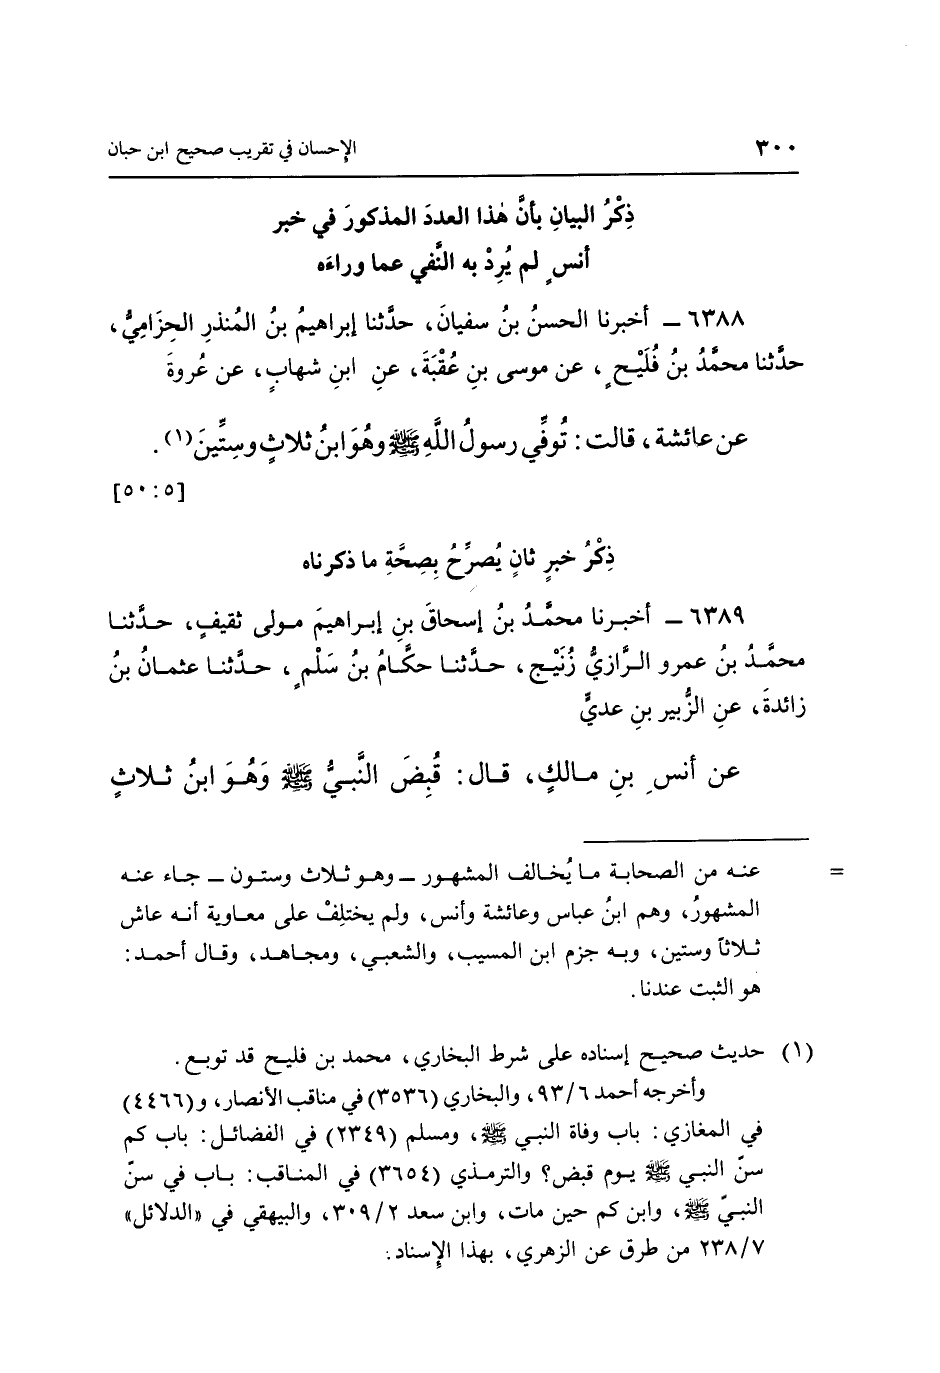 ٣٠٠ الإحسان في تقريب صحيح ابن حبان
ذِكْرُ البيانِ بأنَّ هٰذا العددَ المذكورَ في خبر
أنسٍ لم يُرِدْ به النَّفي عما وراءَه
٦٣٨٨ ــ أخبرنا الحسنُ بنُ سفيانَ، حدَّثنا إبراهيمُ بنُ المُنذرِ الحِزَامِيُّ،
حدَّثنا محمَّدُ بنُ فُلَيْحٍ، عن موسى بنِ عُقْبَةَ، عنِ ابنِ شهابٍ، عن عُروةَ
عن عائشة، قالت: تُوفِّي رسولُ اللَّهِ ﷺ وهُوَ ابنُ ثلاثٍ وسِتِّينَ(١).
[٥٠:٥]
ذِكْرُ خبرٍ ثانٍ يُصرِّحُ بِصِحَّةِ ما ذكرناه
٦٣٨٩ ــ أخبرنا محمَّدُ بنُ إسحاقَ بنِ إبراهيمَ مولى ثقيفٍ، حدَّثنا
محمَّدُ بنُ عمرو الرَّازيُّ زُنَيْج، حدَّثنا حكَّامُ بنُ سَلْمٍ، حدَّثنا عثمانُ بنُ
زائدةَ، عنِ الزُّبير بنِ عديٍّ
عن أنسِ بنِ مالكٍ، قال: قُبِضَ النَّبيُّ ﷺ وَهُوَ ابنُ ثلاثٍ
= عنه من الصحابة ما يُخالف المشهور ــ وهو ثلاث وستون ــ جاء عنه
المشهورُ، وهم ابنُ عباس وعائشة وأنس، ولم يختلِفْ على معاوية أنه عاش
ثلاثاً وستين، وبه جزم ابن المسيب، والشعبي، ومجاهد، وقال أحمد:
هو الثبت عندنا.
(١) حديث صحيح إسناده على شرط البخاري، محمد بن فليح قد توبع.
وأخرجه أحمد ٩٣/٦، والبخاري (٣٥٣٦) في مناقب الأنصار، و(٤٤٦٦)
في المغازي: باب وفاة النبي ﷺ، ومسلم (٢٣٤٩) في الفضائل: باب كم
سنّ النبي ﷺ يوم قبض؟ والترمذي (٣٦٥٤) في المناقب: باب في سنّ
النبيّ ﷺ، وابن كم حين مات، وابن سعد ٣٠٩/٢، والبيهقي في «الدلائل»
٢٣٨/٧ من طرق عن الزهري، بهذا الإسناد.